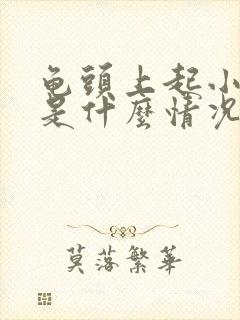 龟頭上起小
是什麼情况
莫落繁華